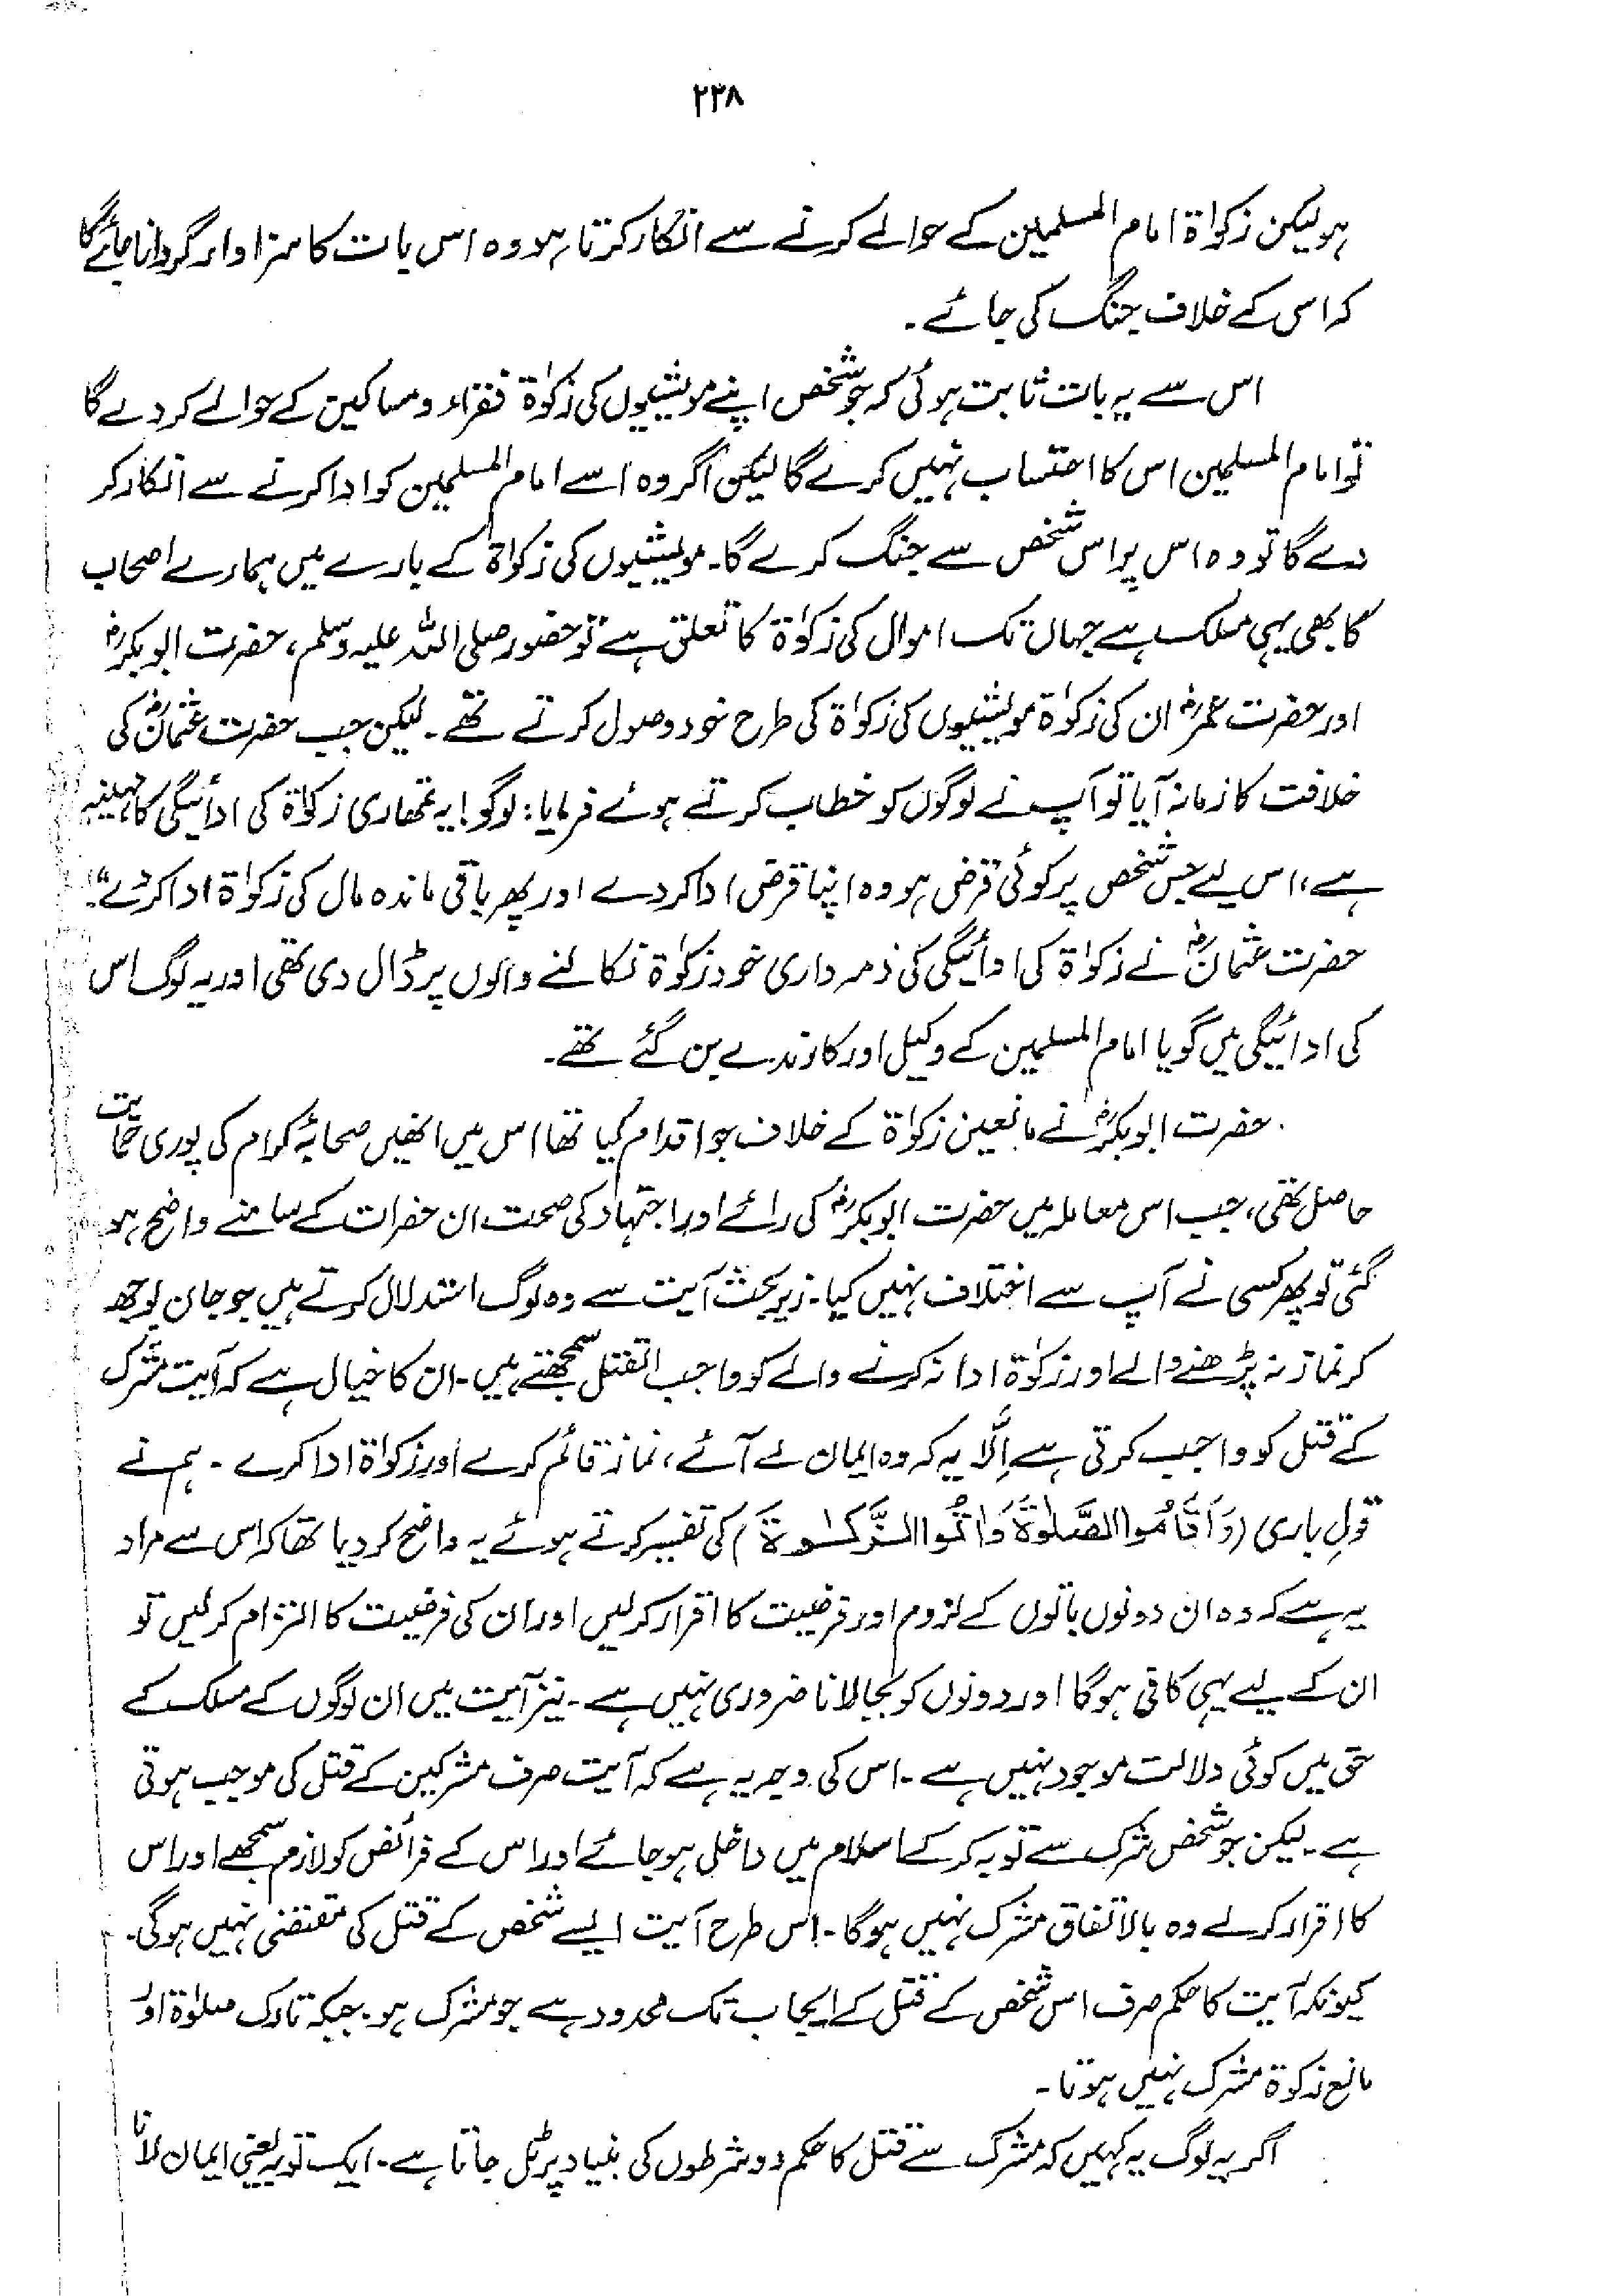 ۲۳۸
ہو لیکن زکوٰۃ امام المسلمین کے حوالے کرنے سے انکار کرتا ہو وہ اس بات کا سزاوار گردانا جائے گا
کہ اس کے خلاف جنگ کی جائے۔
اس سے یہ بات ثابت ہوئی کہ جو شخص اپنے مویشیوں کی زکوٰۃ فقراء و مساکین کے حوالے کر دے گا
تو امام المسلمین اس کا احتساب نہیں کرے گا لیکن اگر وہ اسے امام المسلمین کو ادا کرنے سے انکار کر
دے گا تو وہ اس پر اس شخص سے جنگ کرے گا۔ مویشیوں کی زکواۃ کے بارے میں ہمارے اصحاب
کا بھی یہی مسلک ہے جہاں تک اموال کی زکوٰۃ کا تعلق ہے تو حضور صلی اللہ علیہ وسلم، حضرت ابوبکرؓ
اور حضرت عمرؓ ان کی زکوٰۃ مویشیوں کی زکوٰۃ کی طرح خود وصول کرتے تھے۔ لیکن جب حضرت عثمانؓ کی
خلافت کا زمانہ آیا تو آپ نے لوگوں کو خطاب کرتے ہوئے فرمایا: لوگو! یہ تمھاری زکوٰۃ کی ادائیگی کا مہینہ
ہے، اس لیے جس شخص پر کوئی قرض ہو وہ اپنا قرض ادا کر دے اور پھر باقی ماندہ مال کی زکوٰۃ ادا کر دے"۔
حضرت عثمانؓ نے زکوٰۃ کی ادائیگی کی ذمہ داری خود زکوٰۃ نکالنے والوں پر ڈال دی تھی اور یہ لوگ اس
کی ادائیگی میں گویا امام المسلمین کے وکیل اور کارندے بن گئے تھے۔
حضرت ابوبکرؓ نے مانعین زکوٰۃ کے خلاف جو اقدام کیا تھا اس میں انھیں صحابۂ کرام کی پوری حمایت
حاصل تھی، جب اس معاملہ میں حضرت ابوبکرؓ کی رائے اور اجتہاد کی صحت ان حضرات کے سامنے واضح ہو
گئی تو پھر کسی نے آپ سے اختلاف نہیں کیا۔ زیر بحث آیت سے وہ لوگ استدلال کرتے ہیں جو جان بوجھ
کر نماز نہ پڑھنے والے اور زکوٰۃ ادا نہ کرنے والے کو واجب القتل سمجھتے ہیں۔ ان کا خیال ہے کہ آیت مشرک
کے قتل کو واجب کرتی ہے اِلّا یہ کہ وہ ایمان لے آئے، نماز قائم کرے اور زکوٰۃ ادا کرے۔ ہم نے
قولِ باری (وَاَقَامُوا الصَّلٰوۃَ وَاٰتُوا الزَّکٰوۃَ) کی تفسیر کرتے ہوئے یہ واضح کر دیا تھا کہ اس سے مراد
یہ ہے کہ وہ ان دونوں باتوں کے لزوم اور فرضیت کا اقرار کر لیں اور ان کی فرضیت کا التزام کر لیں تو
ان کے لیے یہی کافی ہو گا اور دونوں کو بجا لانا ضروری نہیں ہے۔ نیز آیت میں ان لوگوں کے مسلک کے
حق میں کوئی دلالت موجود نہیں ہے۔ اس کی وجہ یہ ہے کہ آیت صرف مشرکین کے قتل کی موجب ہوتی
ہے۔ لیکن جو شخص شرک سے توبہ کر کے اسلام میں داخل ہو جائے اور اس کے فرائض کو لازم سمجھے اور اس
کا اقرار کر لے وہ بالاتفاق مشرک نہیں ہوگا۔ اس طرح آیت ایسے شخص کے قتل کی مقتضی نہیں ہوگی۔
کیونکہ آیت کا حکم صرف اس شخص کے قتل کے ایجاب تک محدود ہے جو مشرک ہو۔ جبکہ تارک صلوٰۃ اور
مانع زکوۃ مشرک نہیں ہوتا۔
اگر یہ لوگ یہ کہیں کہ مشرک سے قتل کا حکم دو شرطوں کی بنیاد پر ٹل جاتا ہے۔ ایک توبہ یعنی ایمان لانا